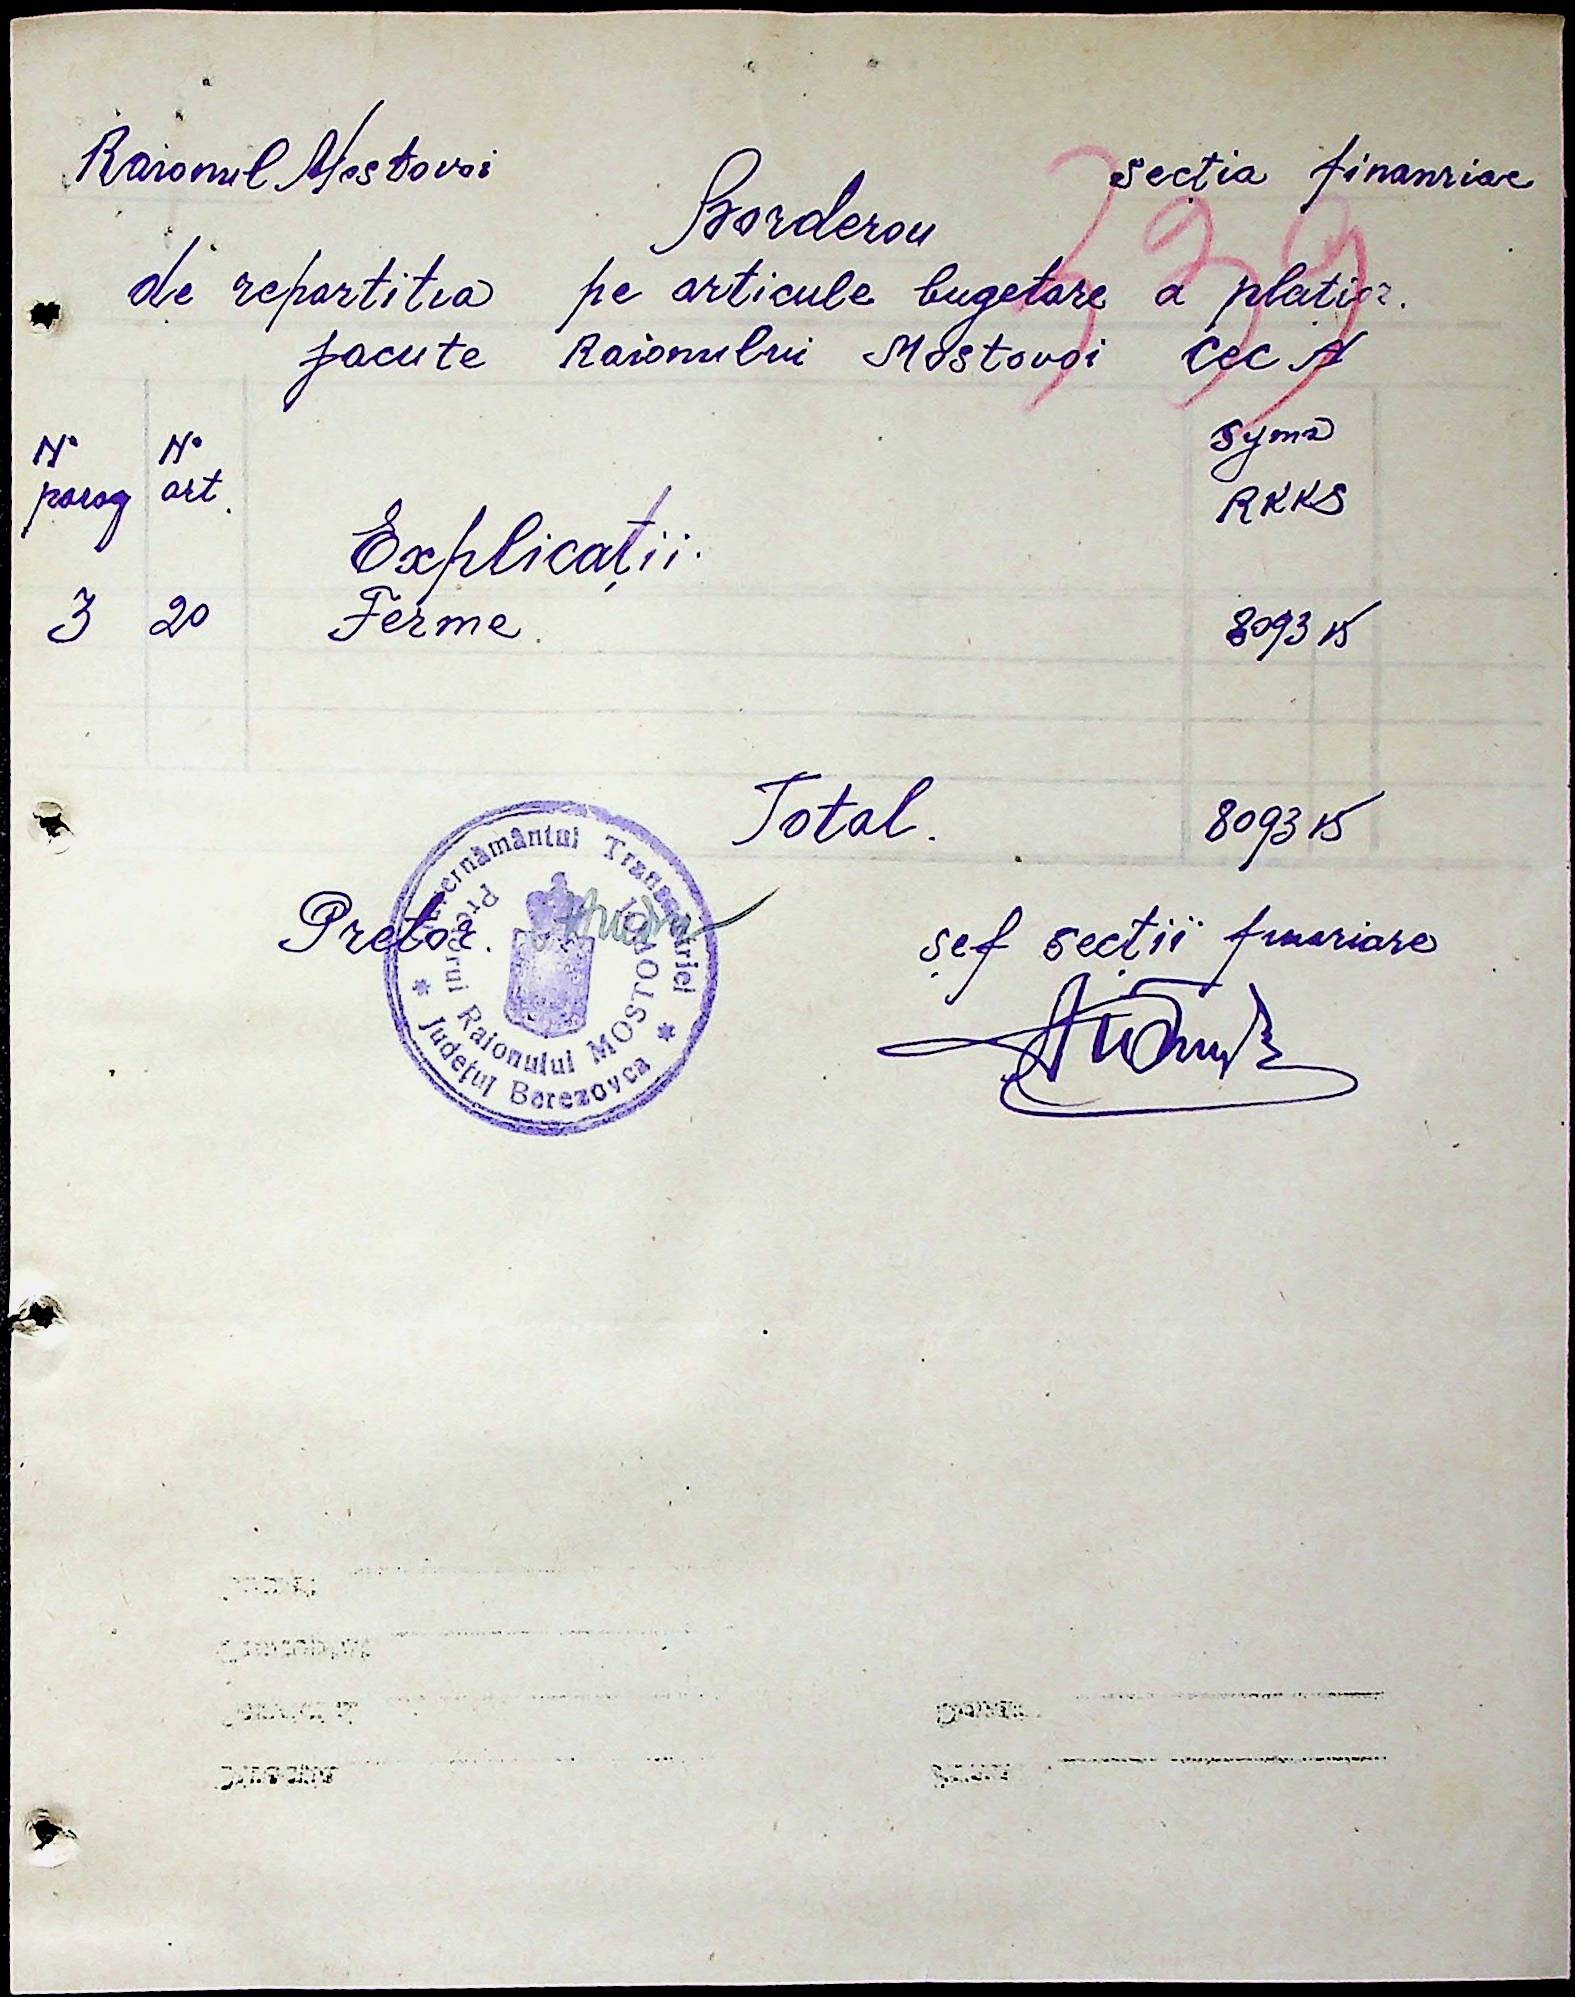 Raionul Mostovoi
secția finanriae
Borderou
399
de repartitia pe articule bugetare a platior.
facute Raionului Mostovoi Cec N
N° parag
N° art.
Explicații.
Syma
RKKS
3 20 Ferme. 8093 15
Total. 8093 15
Pretor.
șef secții finanriare
Guvernământul Transnistriei
Pretorui Raionului MOSTOVOI
* Județul Berezovca *